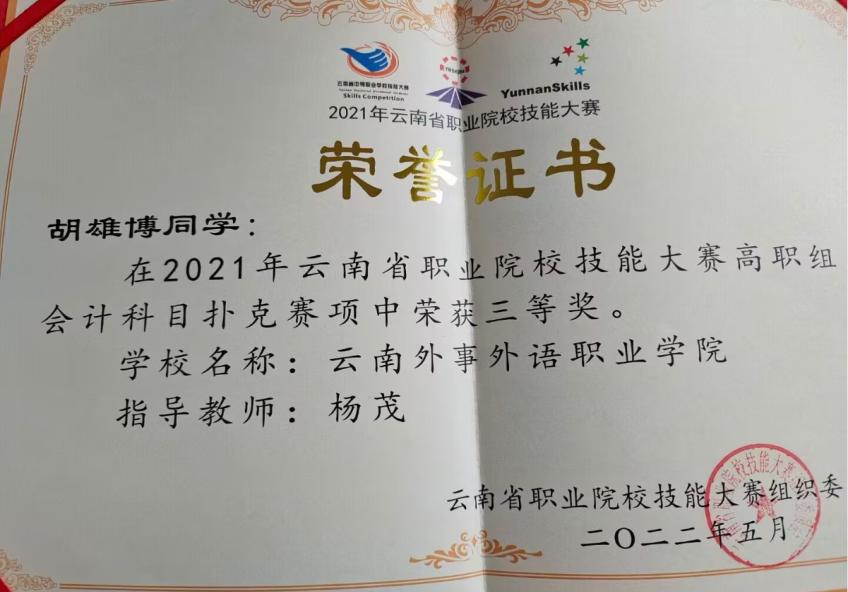 云南省中等职业学校技能大赛
Skills Competition
YunnanSkills
2021年云南省职业院校技能大赛
荣誉证书
胡雄博同学：
在2021年云南省职业院校技能大赛高职组
会计科目扑克赛项中荣获三等奖。
学校名称：云南外事外语职业学院
指导教师：杨茂
云南省职业院校技能大赛组织委
二〇二二年五月